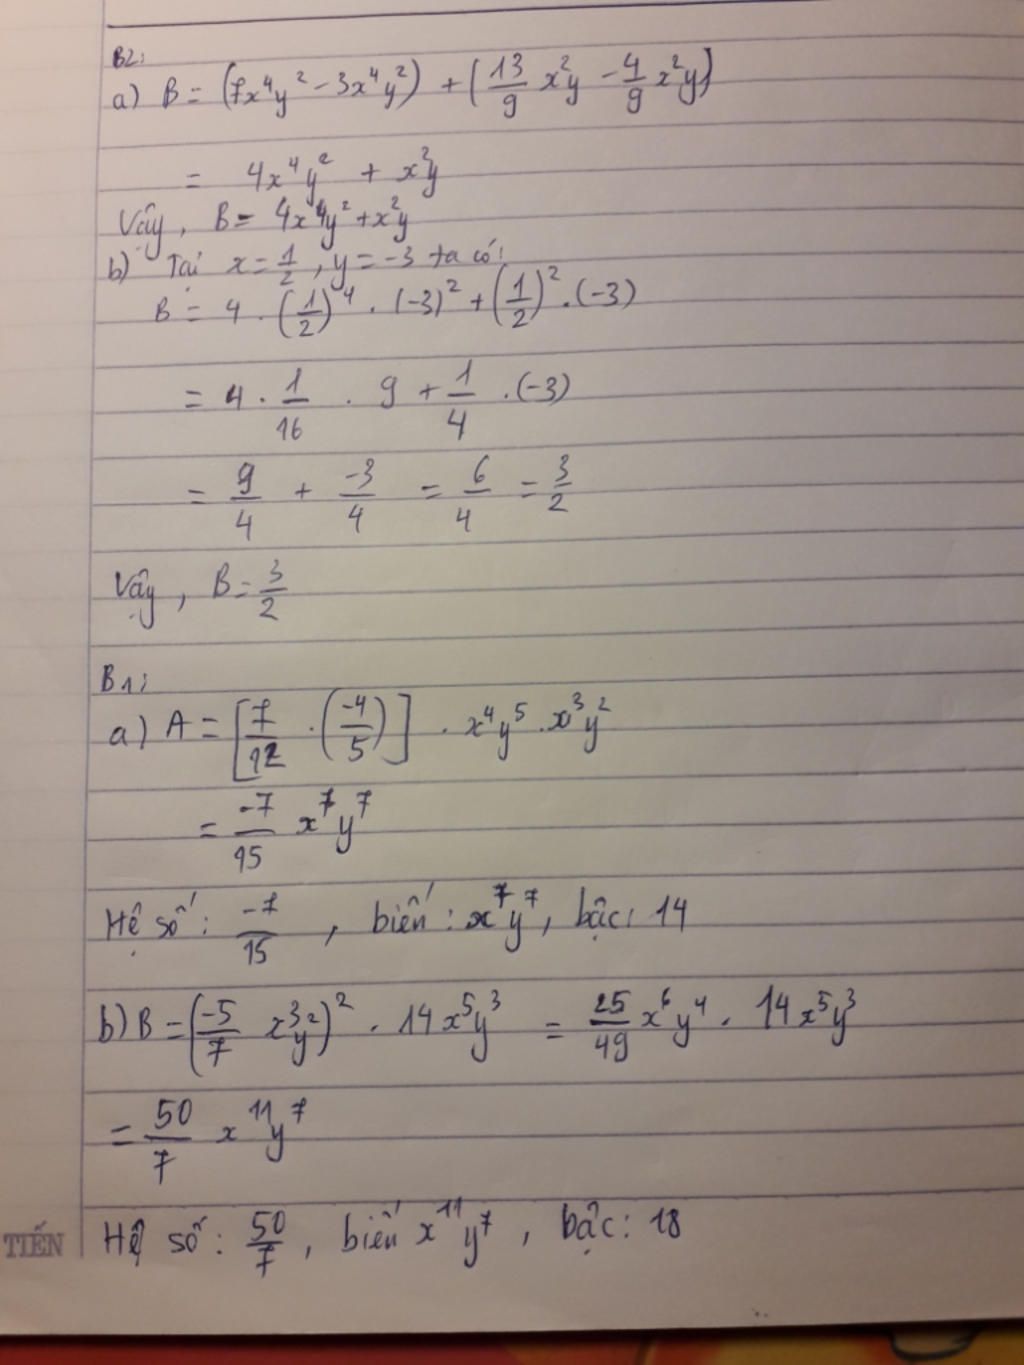 B2:
a) B = (7x⁴y² - 3x⁴y²) + (13/9 x²y - 4/9 x²y)
= 4x⁴y² + x²y
Vậy, B = 4x⁴y² + x²y
b) Tại x = 1/2, y = -3 ta có:
B = 4 . (1/2)⁴ . (-3)² + (1/2)² . (-3)
= 4 . 1/16 . 9 + 1/4 . (-3)
= 9/4 + -3/4 = 6/4 = 3/2
Vậy, B = 3/2
B1:
a) A = [7/12 . (-4/5)] . x⁴y⁵ . x³y²
= -7/15 x⁷y⁷
Hệ số: -7/15, biến: x⁷y⁷, bậc: 14
b) B = (-5/7 x³y²)² . 14x⁵y³ = 25/49 x⁶y⁴ . 14x⁵y³
= 50/7 x¹¹y⁷
Hệ số: 50/7, biến x¹¹y⁷, bậc: 18
TIẾN